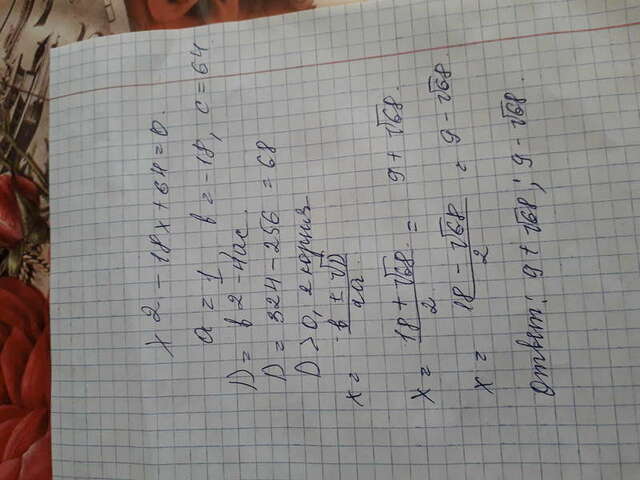 x2 - 18x + 64 = 0.
a = 1 b = -18, c = 64
D = b2 - 4ac.
D = 324 - 256 = 68
D > 0, 2 корня
x = -b ± √D / 2a.
x = 18 + √68 / 2 = 9 + √68.
x = 18 - √68 / 2 = 9 - √68.
Ответ: 9 + √68; 9 - √68.